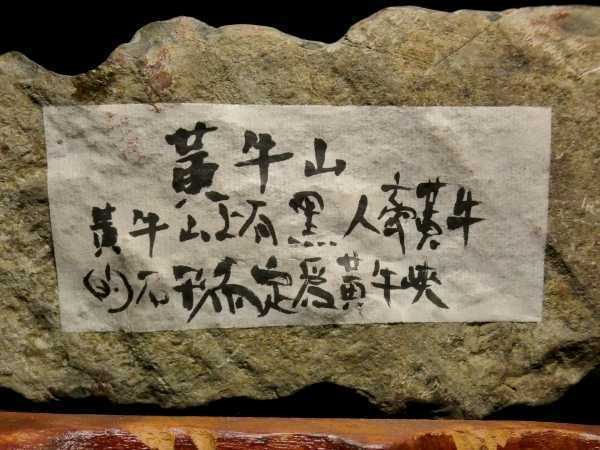 黃牛山
黃牛山上有黑人牽黃牛
的石形而定爲黃牛峽